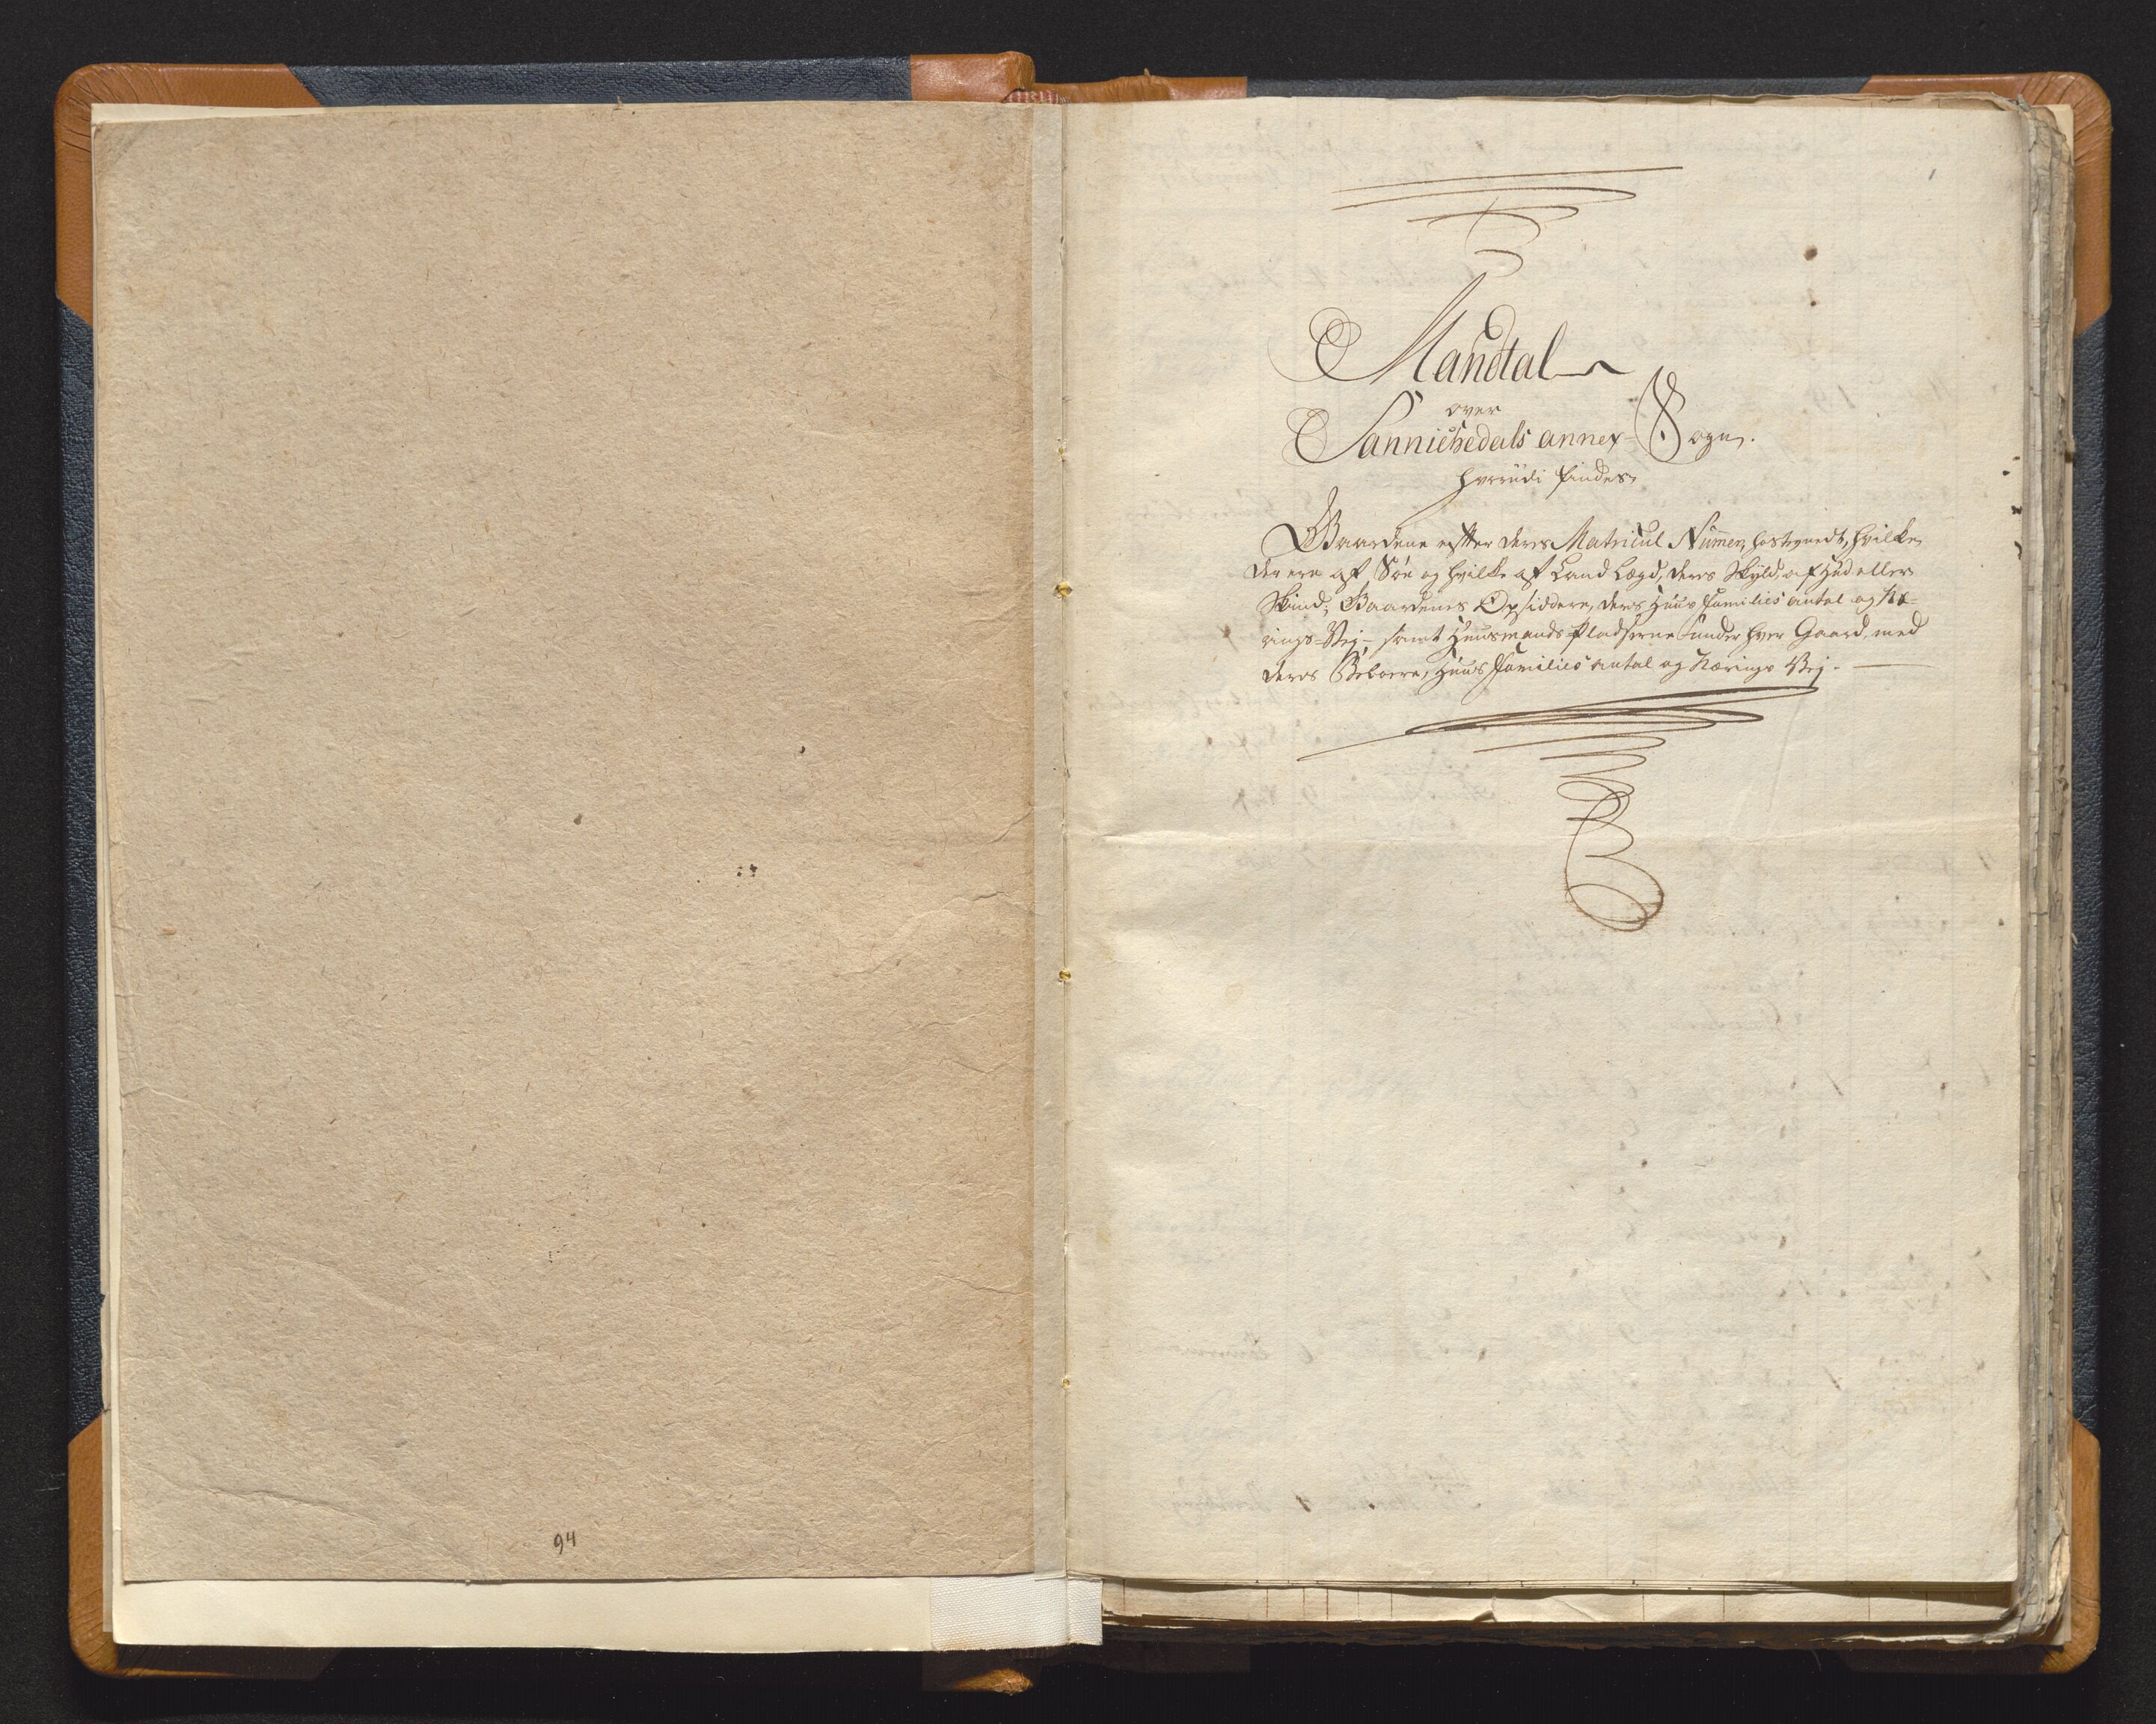 1
Mandtal
over
Sannichedals annex-Sogn.
hvorudi findes
Gaardene efter deres Matricul Numer, hostegnedt, hvilke
der ere af Søe og hvilke af Land Lægd, deres Skyld af Hud eller
Skind; Gaardenes Opsiddere, deres Huus Families antal og Næ-
rings-Vej,- samt Huusmands Pladserne under hver Gaard, med
deres Beboere, Huus Families antal og Nærings Vej.
94